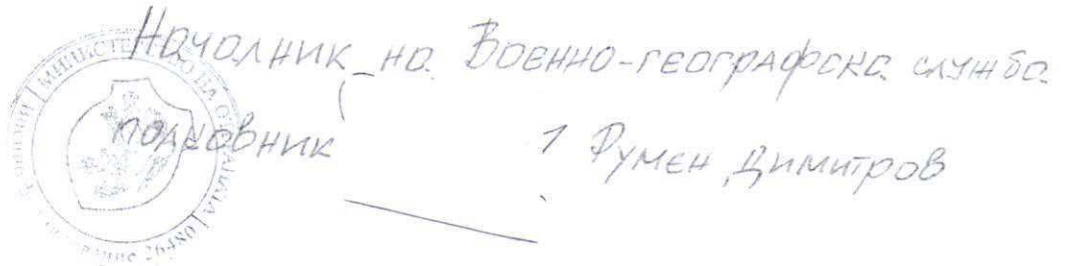 Началник на Военно-географска служба
полковник / Румен Димитров
МИНИСТЕРСТВО НА ОТБРАНАТА